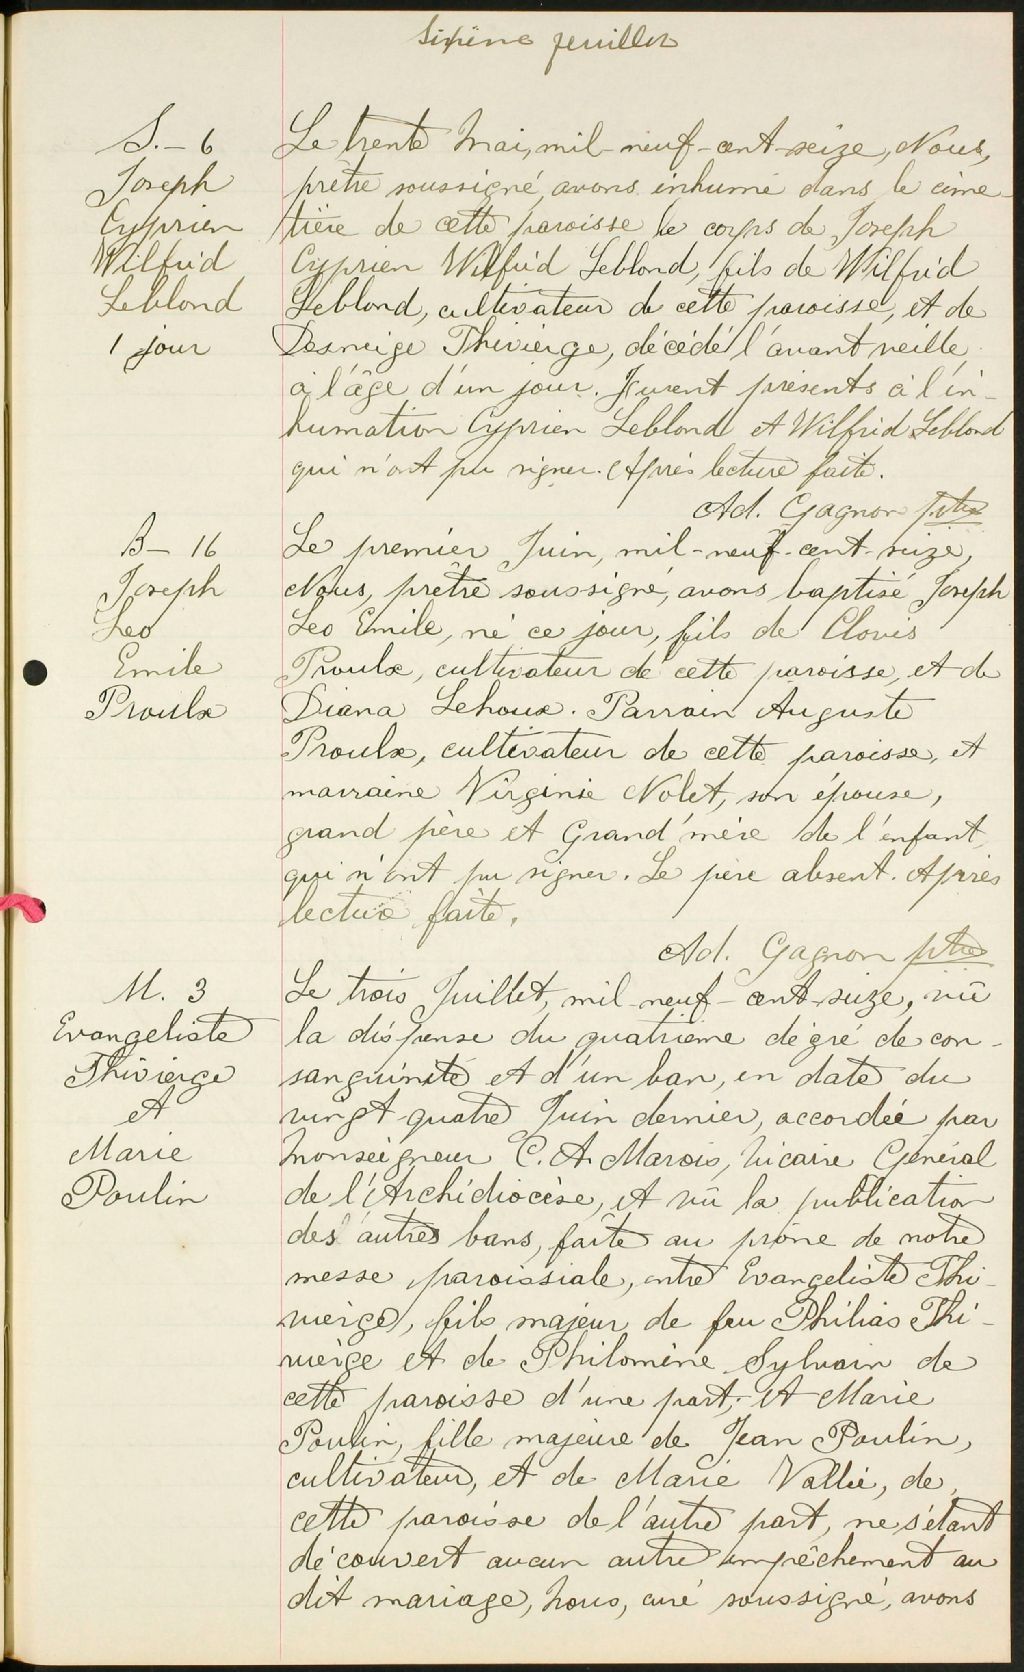 Sixième feuillet
S. - 6
Joseph
Cyprien
Wilfrid
Leblond
1 jour
Le trente Mai, mil-neuf-cent-seize, Nous,
prêtre soussigné, avons inhumé dans le cime-
tière de cette paroisse le corps de Joseph
Cyprien Wilfrid Leblond, fils de Wilfrid
Leblond, cultivateur de cette paroisse, et de
Desneige Thivierge, décédé l'avant veille,
à l'âge d'un jour. Furent présents à l'in-
humation Cyprien Leblond et Wilfrid Leblond
qui n'ont pu signer. Après lecture faite.
Ad. Gagnon ptre
B - 16
Joseph
Leo
Emile
Proulx
Le premier Juin, mil-neuf-cent-seize,
Nous, prêtre soussigné, avons baptisé Joseph
Leo Emile, né ce jour, fils de Clovis
Proulx, cultivateur de cette paroisse, et de
Diana Lehoux. Parrain Auguste
Proulx, cultivateur de cette paroisse, et
marraine Virginie Nolet, son épouse,
grand père et Grand'mère de l'enfant,
qui n'ont pu signer. Le père absent. Après
lecture faite.
Ad. Gagnon ptre
M. 3
Evangeliste
Thivierge
et
Marie
Poulin
Le trois Juillet, mil-neuf-cent-seize, vû
la dispense du quatrième dégré de con-
sanguinité et d'un ban, en date du
vingt quatre Juin dernier, accordée par
Monseigneur C. A. Marois, Vicaire Général
de l'Archidiocèse, et vû la publication
des autres bans, faite au prône de notre
messe paroissiale, entre Evangeliste Thi-
vierge, fils majeur de feu Philias Thi-
vierge et de Philomène Sylvain de
cette paroisse d'une part; et Marie
Poulin, fille majeure de Jean Poulin,
cultivateur, et de Marie Vallée, de
cette paroisse de l'autre part, ne s'étant
découvert aucun autre empêchement au
dit mariage, Nous, curé soussigné, avons